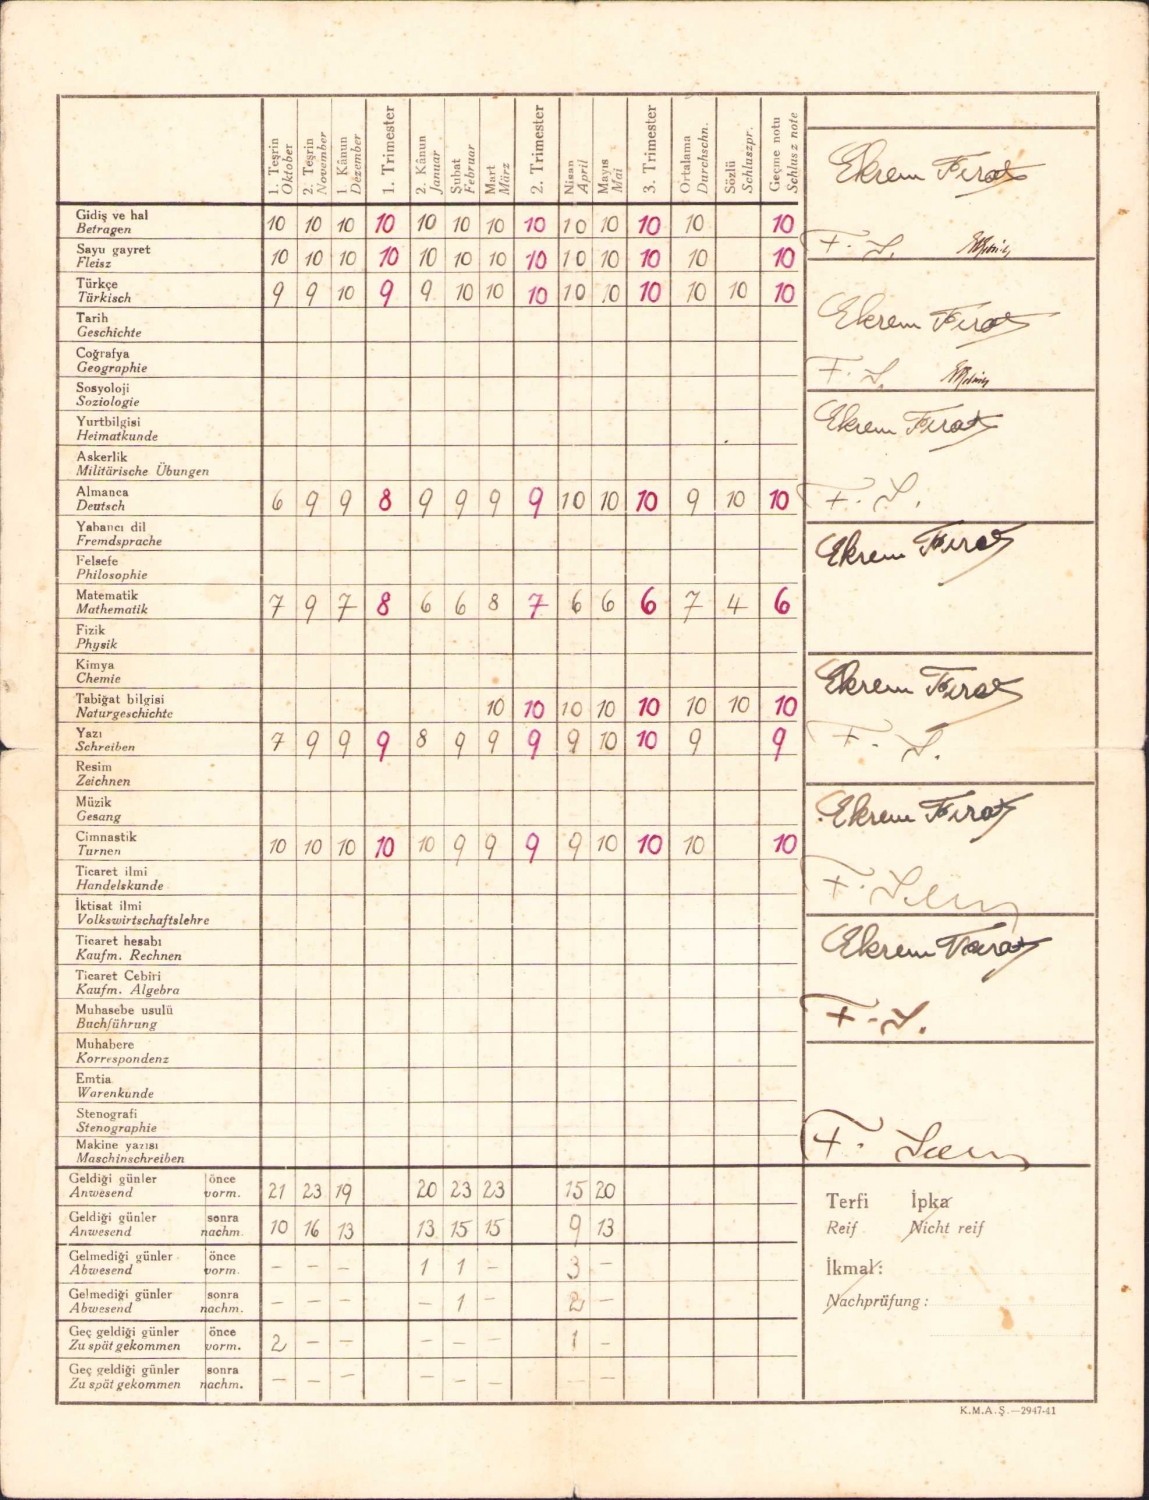 1. Teşrin Oktober
2. Teşrin November
1. Kânun Dézember
1. Trimester
2. Kânun Januar
Şubat Februar
Mart März
2. Trimester
Nisan April
Mayıs Mai
3. Trimester
Ortalama Durchschn.
Sözlü Schluszpr.
Geçme notu Schlusz note
Gidiş ve hal
Betragen 10 10 10 10 10 10 10 10 10 10 10 10 10
Sayu gayret
Fleisz 10 10 10 10 10 10 10 10 10 10 10 10 10
Türkçe
Türkisch 9 9 10 9 9 10 10 10 10 10 10 10 10 10
Tarih
Geschichte
Coğrafya
Geographie
Sosyoloji
Soziologie
Yurtbilgisi
Heimatkunde
Askerlik
Militärische Übungen
Almanca
Deutsch 6 9 9 8 9 9 9 9 10 10 10 9 10 10
Yabancı dil
Fremdsprache
Felsefe
Philosophie
Matematik
Mathematik 7 9 7 8 6 6 8 7 6 6 6 7 4 6
Fizik
Physik
Kimya
Chemie
Tabiğat bilgisi
Naturgeschichte 10 10 10 10 10 10 10 10
Yazı
Schreiben 7 9 9 9 8 9 9 9 9 10 10 9 9
Resim
Zeichnen
Müzik
Gesang
Cimnastik
Turnen 10 10 10 10 10 9 9 9 9 10 10 10 10
Ticaret ilmi
Handelskunde
İktisat ilmi
Volkswirtschaftslehre
Ticaret hesabı
Kaufm. Rechnen
Ticaret Cebiri
Kaufm. Algebra
Muhasebe usulü
Buchführung
Muhabere
Korrespondenz
Emtia
Warenkunde
Stenografi
Stenographie
Makine yazısı
Maschinschreiben
Geldiği günler önce
Anwesend vorm. 21 23 19 20 23 23 15 20
Geldiği günler sonra
Anwesend nachm. 10 16 13 13 15 15 9 13
Gelmediği günler önce
Abwesend vorm. – – – 1 1 – 3 –
Gelmediği günler sonra
Abwesend nachm. – – – – 1 – 2 –
Geç geldiği günler önce
Zu spät gekommen vorm. 2 – – – – – 1 –
Geç geldiği günler sonra
Zu spät gekommen nachm. – – – – – – – –
Ekrem Fırat
F. S.
Ekrem Fırat
F. S.
Ekrem Fırat
F. S.
Ekrem Fırat
Ekrem Fırat
F. S.
Ekrem Fırat
Ekrem Fırat
F. S.
Terfi İpka
Reif Nicht reif
İkmal:
Nachprüfung:
K.M.A.Ş.—2947-41